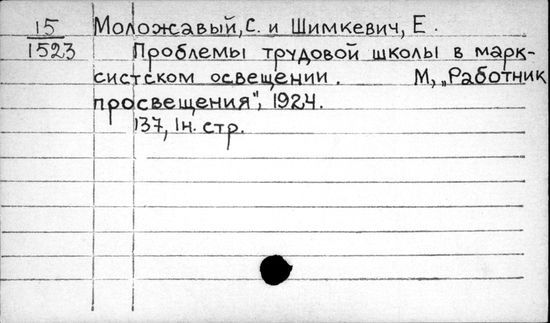 15 Моложавый, С. и Шимкевич, Е.
1523 Проблемы трудовой школы в марк-
систском освещении. М, „Работник
просвещения", 1924.
137, 1н. стр.